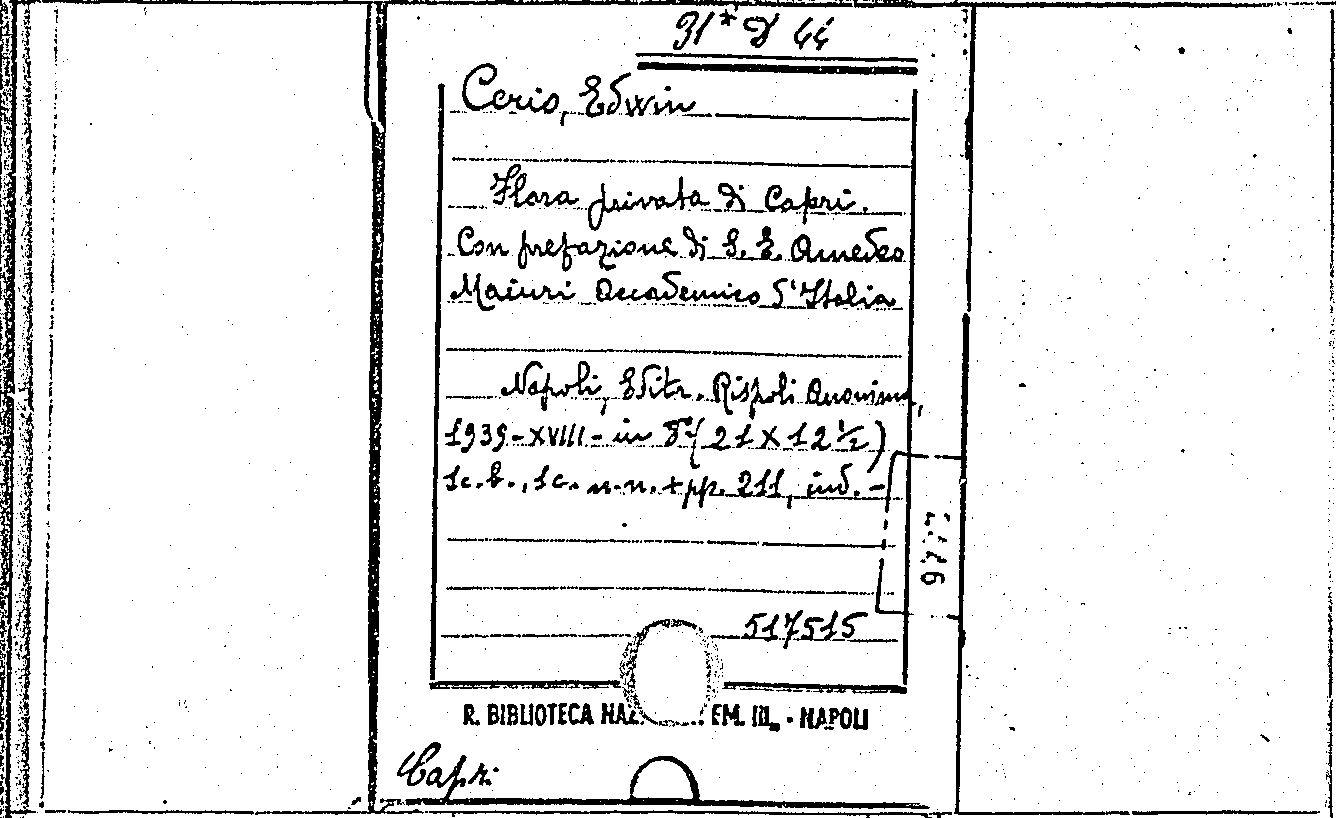 31* D 44
Cerio, Edwin
Flora privata di Capri.
Con prefazione di S. E. Amedeo
Maiuri Accademico d'Italia
Napoli, Editr. Rispoli Anonima,
1939-XVIII- in 8º (21 X 12 ½)
1c.b., 1c. n.n. + pp. 211, ind. -
517515
R. BIBLIOTECA NAZ. EM. III - NAPOLI
Capri